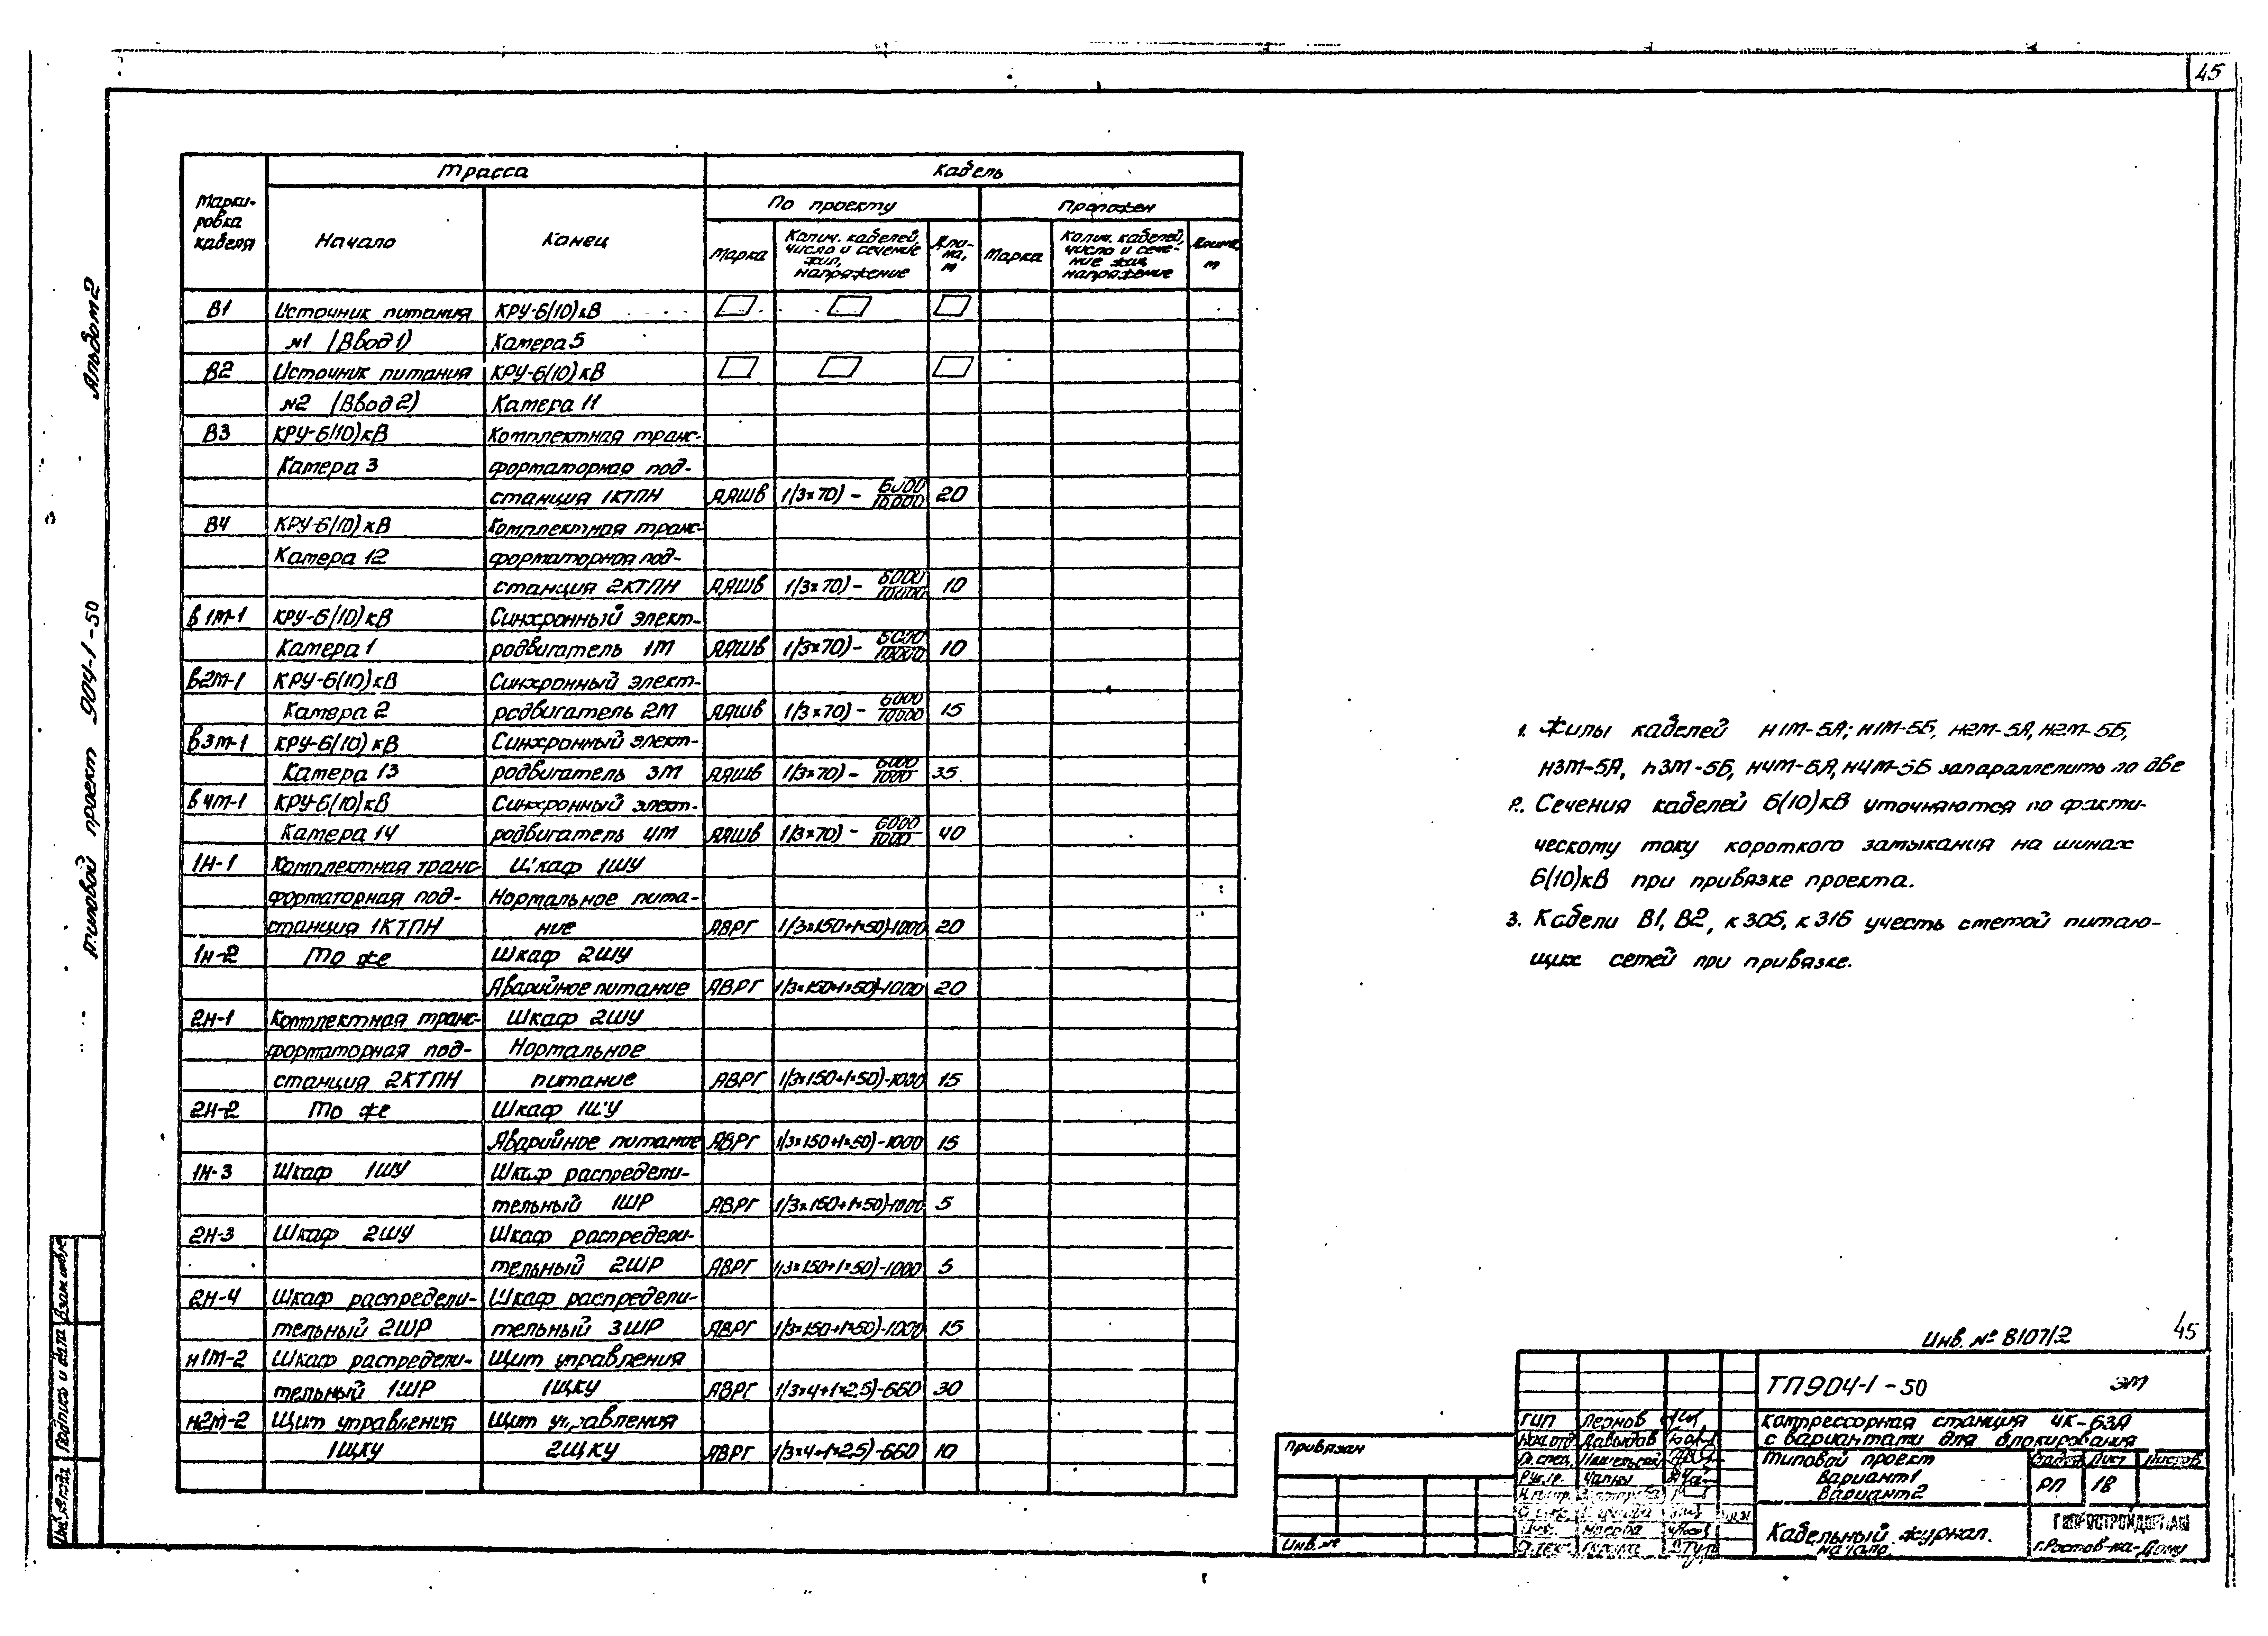 45
Альбом 2
Типовой проект 904-1-50
Марки-
ровка
кабеля
Трасса
Кабель
Начало
Конец
По проекту
Проложен
Марка
Колич. кабелей,
число и сечение
жил,
напряжение
Дли-
на,
м
Марка
Колич. кабелей,
число и сече-
ние жил,
напряжение
Длина,
м
В1 Источник питания КРУ-6(10)кВ
№1 (Ввод 1) Камера 5
В2 Источник питания КРУ-6(10)кВ
№2 (Ввод 2) Камера 11
В3 КРУ-6(10)кВ Комплектная транс-
Камера 3 форматорная под-
станция 1КТПН ААШВ 1(3×70)- 6000/10000 20
В4 КРУ-6(10)кВ Комплектная транс-
Камера 12 форматорная под-
станция 2КТПН ААШВ 1(3×70)- 6000/10000 10
В1М-1 КРУ-6(10)кВ Синхронный элект-
Камера 1 родвигатель 1М ААШВ 1(3×70)- 6000/10000 10
В2М-1 КРУ-6(10)кВ Синхронный элект-
Камера 2 родвигатель 2М ААШВ 1(3×70)- 6000/10000 15
В3М-1 КРУ-6(10)кВ Синхронный элект-
Камера 13 родвигатель 3М ААШВ 1(3×70)- 6000/1000 35
В4М-1 КРУ-6(10)кВ Синхронный элект-
Камера 14 родвигатель 4М ААШВ 1(3×70)- 6000/1000 40
1Н-1 Комплектная транс- Шкаф 1ШУ
форматорная под- Нормальное пита-
станция 1КТПН ние АВРГ 1(3×150+1×50)-1000 20
1Н-2 То же Шкаф 2ШУ
Аварийное питание АВРГ 1(3×150+1×50)-1000 20
2Н-1 Комплектная транс- Шкаф 2ШУ
форматорная под- Нормальное
станция 2КТПН питание АВРГ 1(3×150+1×50)-1000 15
2Н-2 То же Шкаф 1ШУ
Аварийное питание АВРГ 1(3×150+1×50)-1000 15
1Н-3 Шкаф 1ШУ Шкаф распредели-
тельный 1ШР АВРГ 1(3×150+1×50)-1000 5
2Н-3 Шкаф 2ШУ Шкаф распредели-
тельный 2ШР АВРГ 1(3×150+1×50)-1000 5
2Н-4 Шкаф распредели- Шкаф распредели-
тельный 2ШР тельный 3ШР АВРГ 1(3×150+1×50)-1000 15
Н1М-2 Шкаф распредели- Щит управления
тельный 1ШР 1ЩКУ АВРГ 1(3×4+1×2,5)-660 30
Н2М-2 Щит управления Щит управления
1ЩКУ 2ЩКУ АВРГ 1(3×4+1×2,5)-660 10
1. Жилы кабелей Н1М-5А; Н1М-5Б, Н2М-5А, Н2М-5Б,
Н3М-5А, Н3М-5Б, Н4М-5А, Н4М-5Б запараллелить по две
2. Сечения кабелей 6(10)кВ уточняются по факти-
ческому току короткого замыкания на шинах
6(10)кВ при привязке проекта.
3. Кабели В1, В2, К305, К316 учесть сметой питаю-
щих сетей при привязке.
Инв. № 8107/2 45
ТП904-1-50 ЭМ
Компрессорная станция 4К-63А
с вариантами для блокирования
Типовой проект
Вариант 1
Вариант 2
Стадия Лист Листов
РП 18
Кабельный журнал.
Начало.
ГИПРОСТРОЙДОРМАШ
г. Ростов-на-Дону
ГИП Леонов
Нач.отд. Давыдов
Гл.спец.
Рук.гр.
Привязан
Инв. №
Взам. инв. №
Подпись и дата
Инв. № подл.